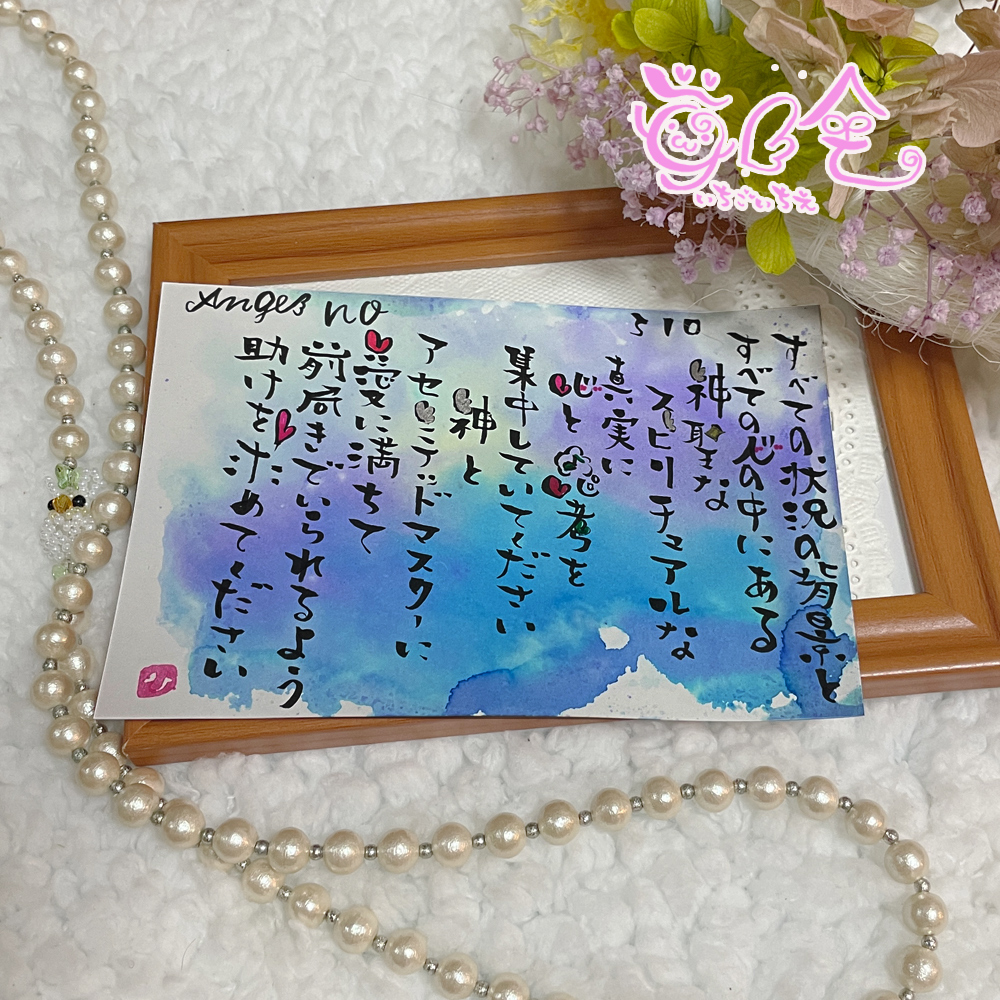 Angel no
310
すべての状況の背景と
すべての人の中にある
神聖な
スピリチュアルな
真実に
心と思考を
集中していてください
神と
アセンデッドマスターに
愛に満ちて
前向きでいられるよう
助けを求めてください
いちごいちえ